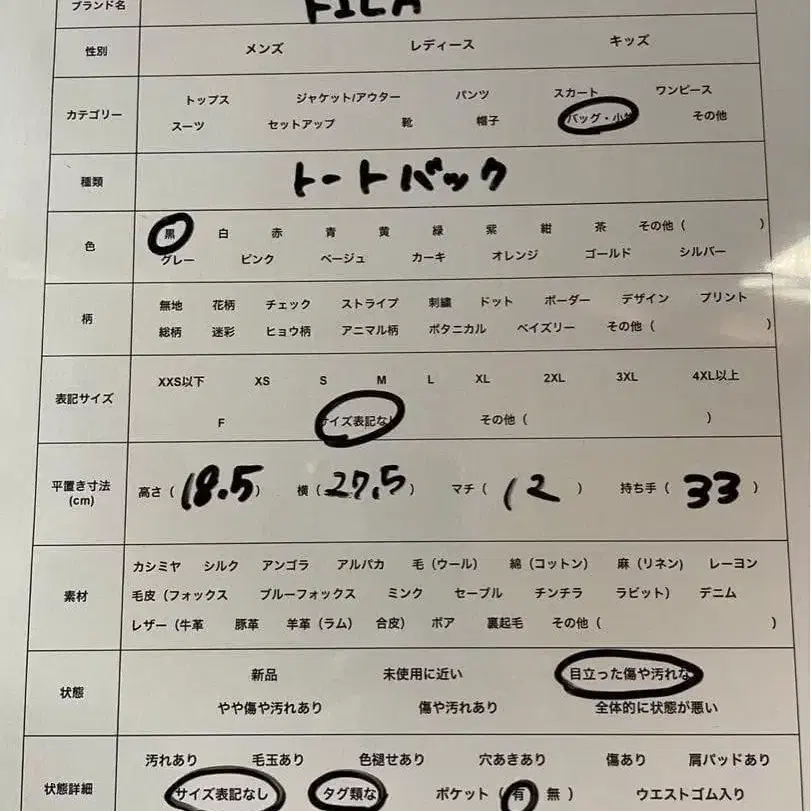 ブランド名 FILA
性別 メンズ レディース キッズ
カテゴリー トップス ジャケット/アウター パンツ スカート ワンピース
スーツ セットアップ 靴 帽子 バッグ・小物 その他
種類 トートバック
色 黒 白 赤 青 黄 緑 紫 紺 茶 その他 ( )
グレー ピンク ベージュ カーキ オレンジ ゴールド シルバー
柄 無地 花柄 チェック ストライプ 刺繍 ドット ボーダー デザイン プリント
総柄 迷彩 ヒョウ柄 アニマル柄 ボタニカル ペイズリー その他 ( )
表記サイズ XXS以下 XS S M L XL 2XL 3XL 4XL以上
F サイズ表記なし その他 ( )
平置き寸法 (cm) 高さ ( 18.5 ) 横 ( 27.5 ) マチ ( 12 ) 持ち手 ( 33 )
素材 カシミヤ シルク アンゴラ アルパカ 毛 (ウール) 綿 (コットン) 麻 (リネン) レーヨン
毛皮 (フォックス ブルーフォックス ミンク セーブル チンチラ ラビット) デニム
レザー (牛革 豚革 羊革 (ラム) 合皮) ボア 裏起毛 その他 ( )
状態 新品 未使用に近い 目立った傷や汚れな
やや傷や汚れあり 傷や汚れあり 全体的に状態が悪い
状態詳細 汚れあり 毛玉あり 色褪せあり 穴あきあり 傷あり 肩パッドあり
サイズ表記なし タグ類な ポケット ( 有 無 ) ウエストゴム入り